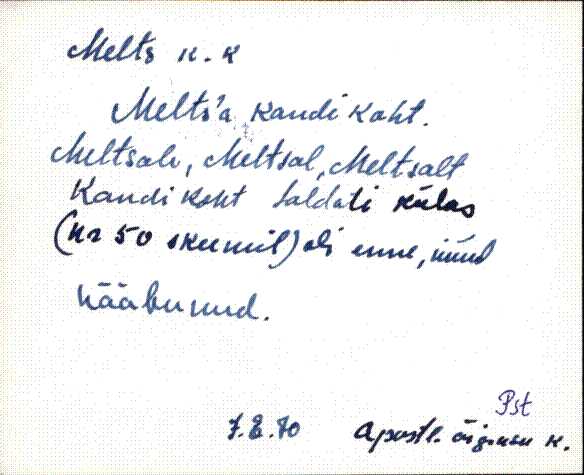 Melts k. k
Melts'a kandi koht.
Meltsale, Meltsal, Meltsalt
Kandi koht Saldati külas
(Nr 50 skeemil) oli enne, nüüd
hääbunud.
Pst
J.E.70 Apostl. õigeusu k.